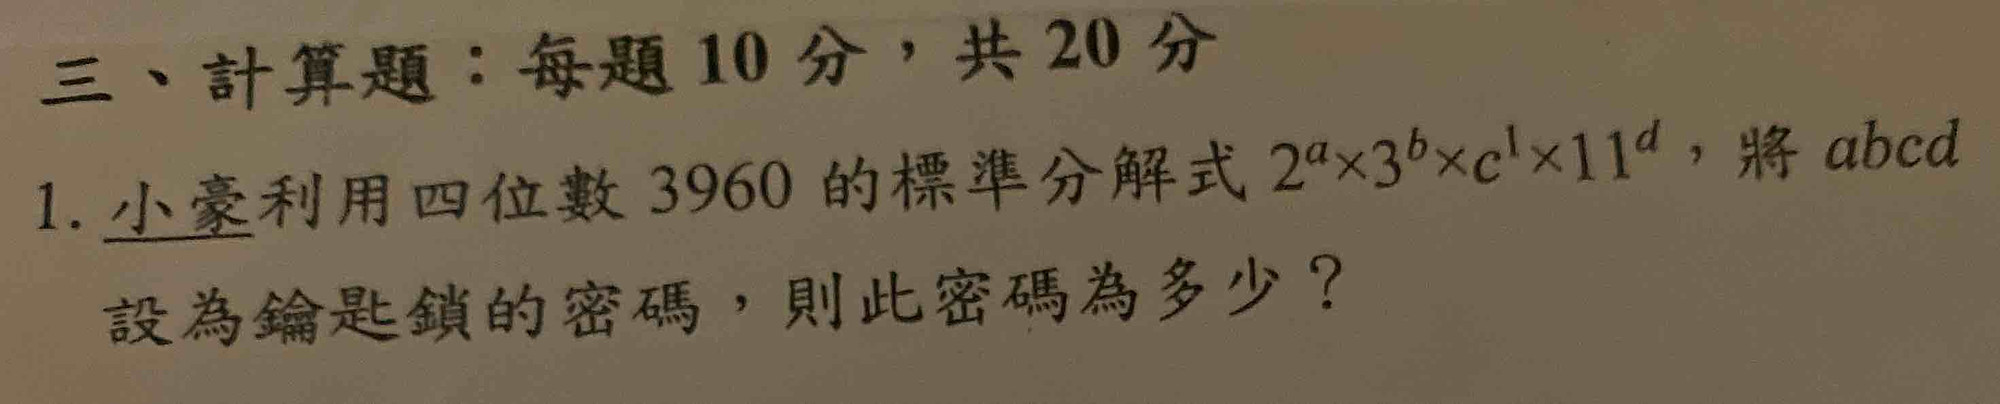 三、計算題：每題 10 分，共 20 分
1. 小豪利用四位數 3960 的標準分解式 2ᵃ×3ᵇ×c¹×11ᵈ，將 abcd
設為鑰匙鎖的密碼，則此密碼為多少？